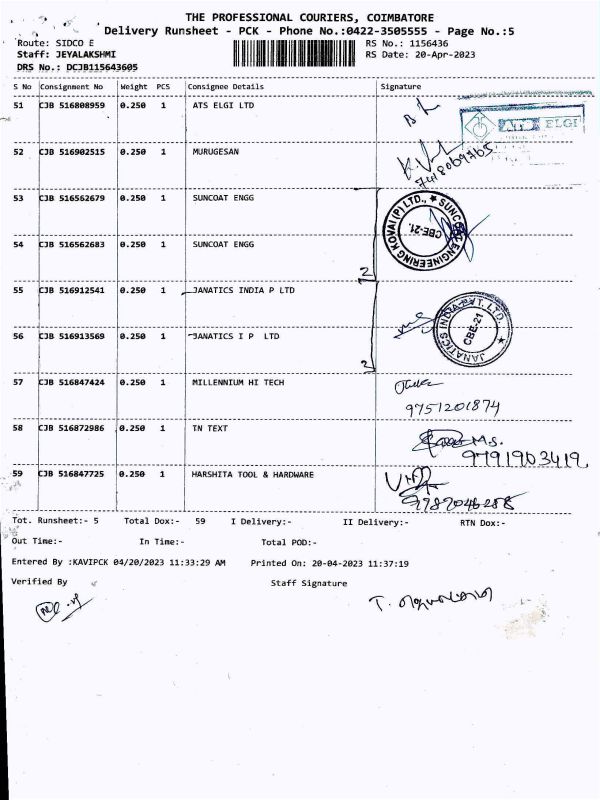 THE PROFESSIONAL COURIERS, COIMBATORE
Delivery Runsheet - PCK - Phone No.:0422-3505555 - Page No.:5
Route: SIDCO E RS No.: 1156436
Staff: JEYALAKSHMI RS Date: 20-Apr-2023
DRS No.: DCJB115643605
S No Consignment No Weight PCS Consignee Details Signature
51 CJB 516808959 0.250 1 ATS ELGI LTD
ATS ELGI
52 CJB 516902515 0.250 1 MURUGESAN
7418069765
53 CJB 516562679 0.250 1 SUNCOAT ENGG
SUNCOAT ENGINEERING KOVAI (P) LTD., CBE-21.
54 CJB 516562683 0.250 1 SUNCOAT ENGG
2
55 CJB 516912541 0.250 1 JANATICS INDIA P LTD
JANATICS INDIA PVT. LTD. CBE-21
56 CJB 516913569 0.250 1 JANATICS I P LTD
2
57 CJB 516847424 0.250 1 MILLENNIUM HI TECH
9751201874
58 CJB 516872986 0.250 1 TN TEXT
M.S.
9791903419
59 CJB 516847725 0.250 1 HARSHITA TOOL & HARDWARE
9787046288
Tot. Runsheet:- 5 Total Dox:- 59 I Delivery:- II Delivery:- RTN Dox:-
Out Time:- In Time:- Total POD:-
Entered By :KAVIPCK 04/20/2023 11:33:29 AM Printed On: 20-04-2023 11:37:19
Verified By Staff Signature